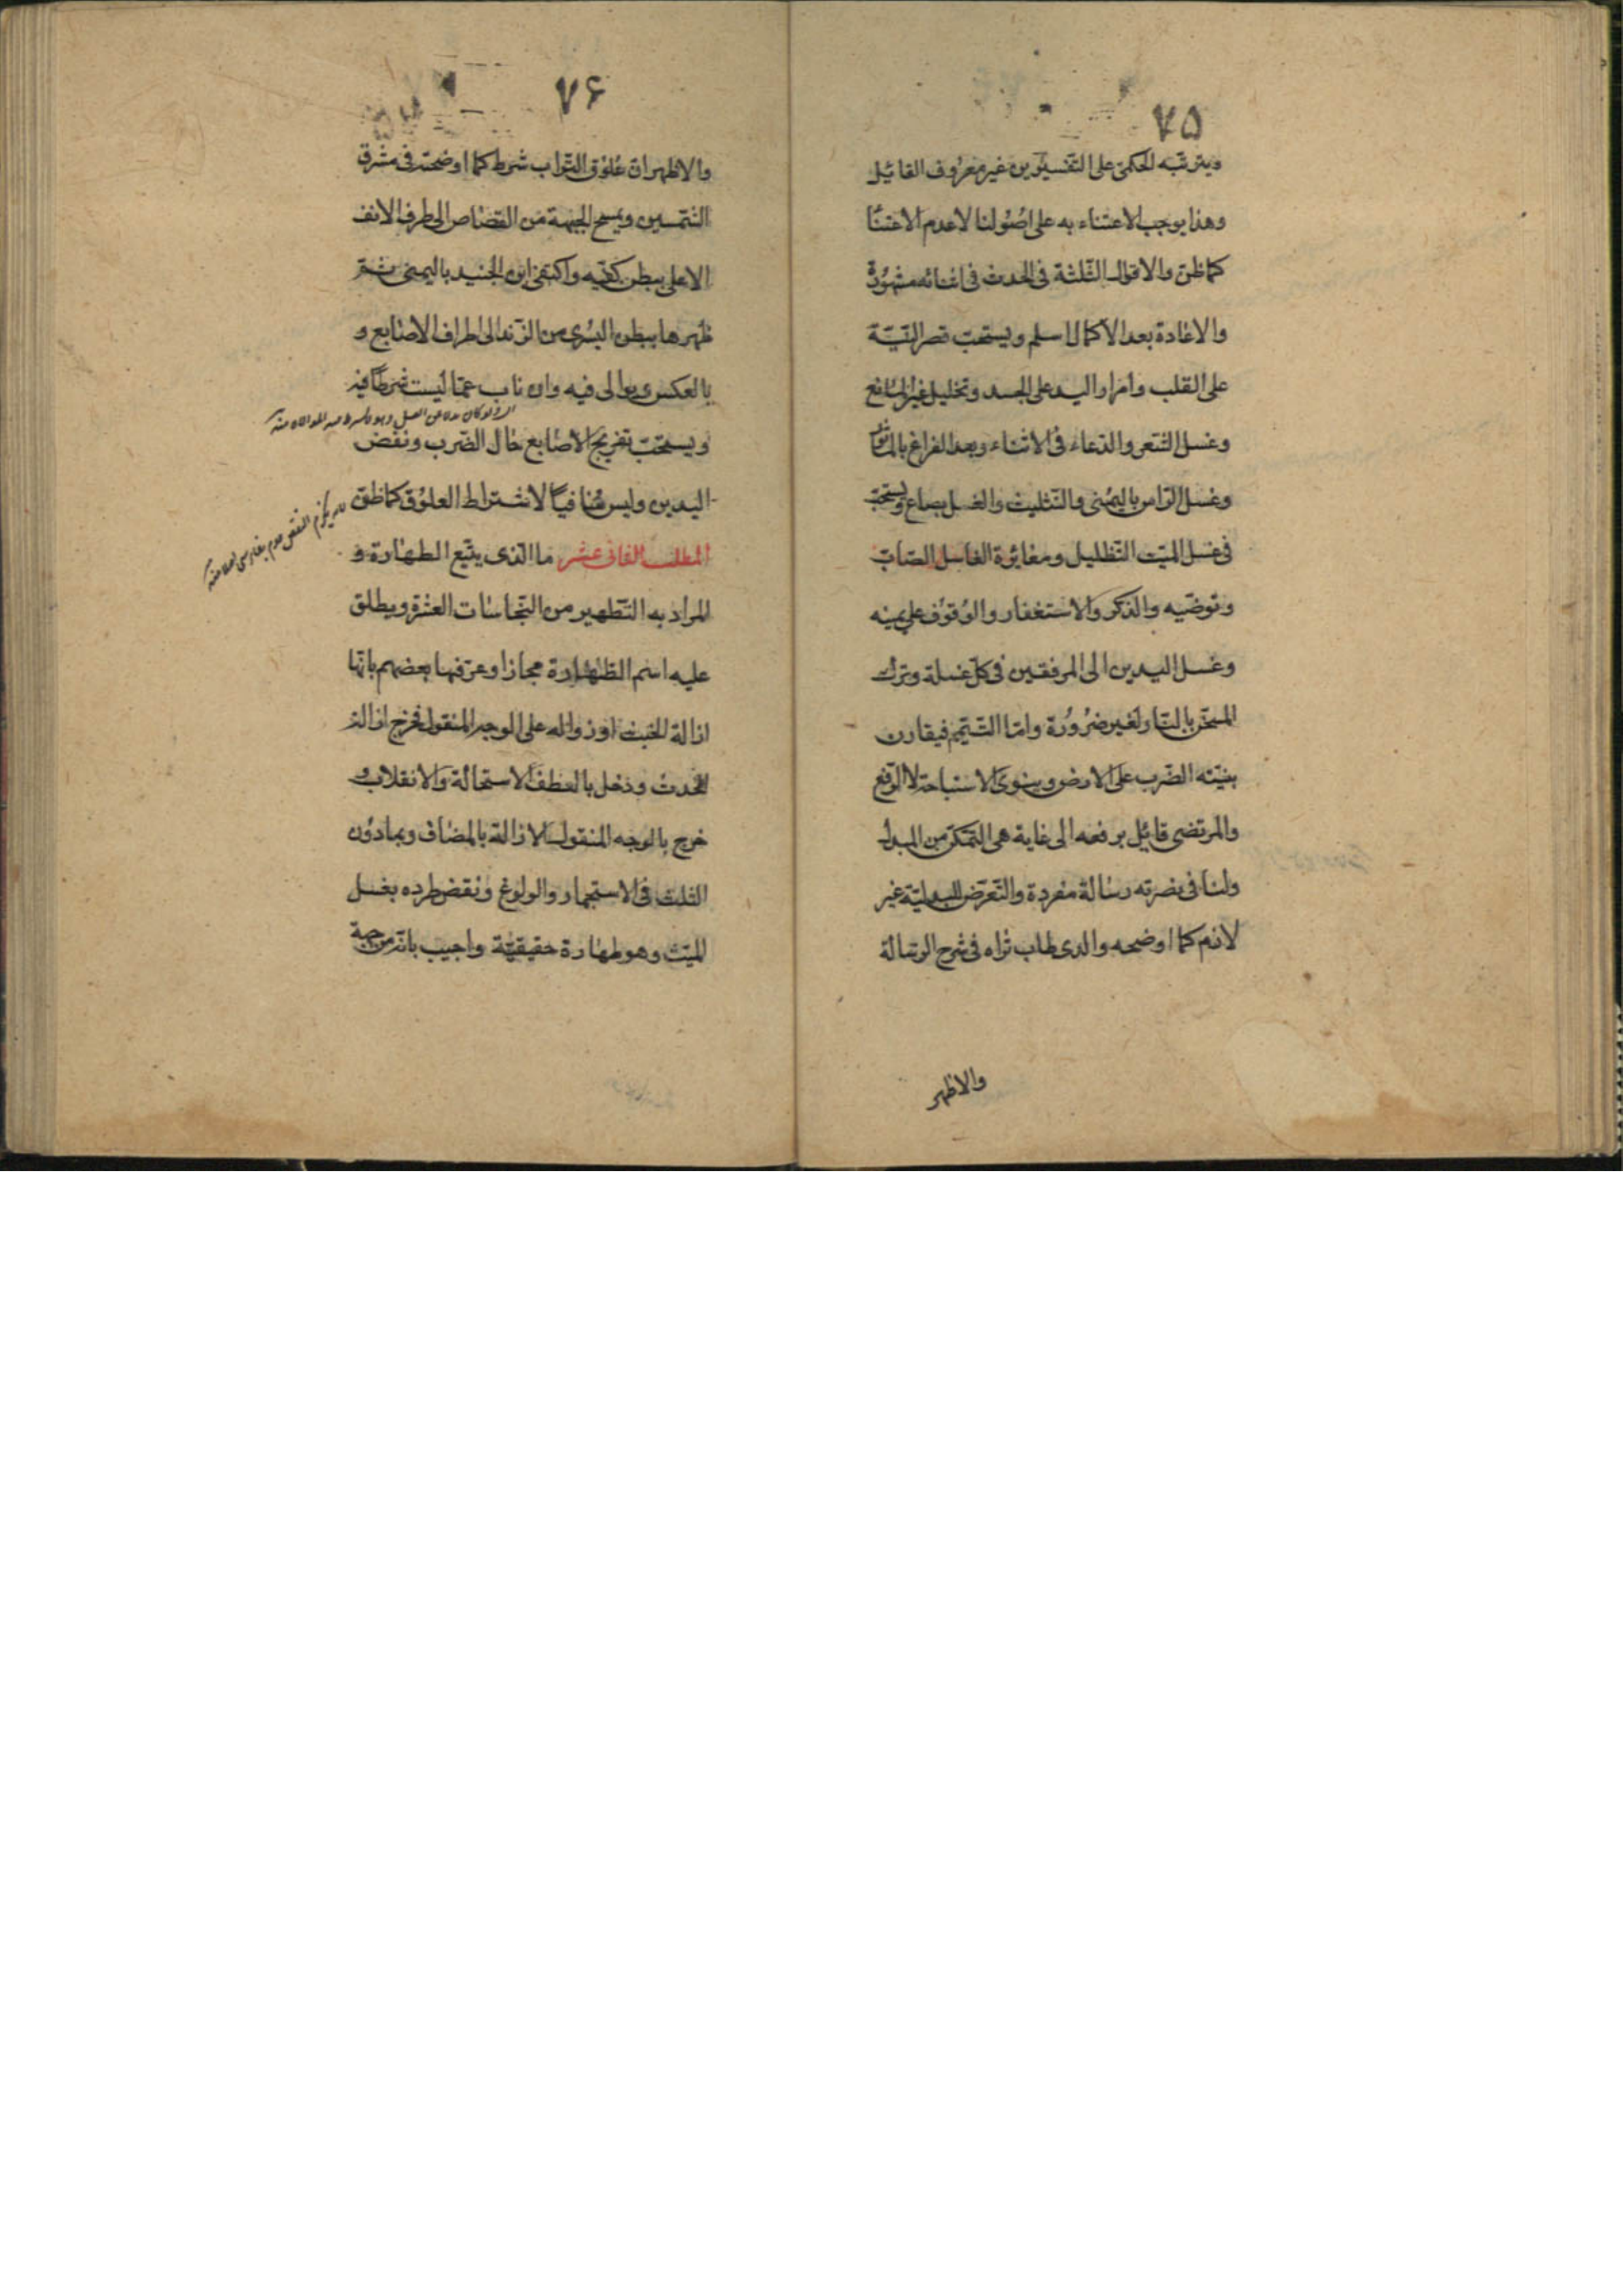 ٧٥
ويترتبه الحكمى على التفسيرين غير معروف القائيل
وهذا يوجب الاعتناء به على اصولنا لا عدم الاعتنا
كما ظن والاقوال الثلثة فى الحدث فى اثنائه مشهورة
والاعادة بعد الاكمال اسلم ويستحب قصر النية
على القلب وامرار اليد على الجسد وتخليل غير المانع
وغسل الشعر والدعاء فى الاثناء وبعد الفراغ بالماثور
وغسل الراس باليمنى والتثليث والغسل بصاع ويستحب
فى غسل الميت التظليل ومغايرة الغاسل الصاب
وتوضيه والذكر والاستغفار والوقوف على يمينه
وغسل اليدين الى المرفقين فى كل غسلة وترك
المسخن بالنار لغير ضرورة واما التيمم فيقارن
بنيته الضرب على الارض وينوى الاستباحة لا الرفع
والمرتضى قائيل برفعه الى غاية هى التمكن من المبدل
ولنا فى نصرته رسالة مفردة والتعرض للبدلية غير
لازم كما اوضحه والدى طاب ثراه فى شرح الرسالة
والاظهر
٧۶
والاظهر ان علوق التراب شرط كما اوضحته فى مشرق
الشمسين ويمسح الجبهة من القصاص الى طرف الانف
الاعلى ببطن كفيه واكتفى ابن الجنيد باليمنى ثم
ظهرها ببطن اليسرى من الزند الى اطراف الاصابع و
بالعكس ويوالى فيه وان ناب عما ليست شرطا فيه
ويستحب تفريج الاصابع حال الضرب ونفض
اليدين وليس منافيا لاشتراط العلوق كما ظن
المطلب الثانى عشر ما الذى يتبع الطهارة و
المراد به التطهير من النجاسات العشرة ويطلق
عليه اسم الطهارة مجازا وعرفها بعضهم بانها
ازالة الخبث او زواله على الوجه المنقول فخرج ازالة
الحدث ودخل بالعطف الاستحالة والانقلاب و
خرج بالوجه المنقول الازالة بالمضاف وبمادون
الثلث فى الاستجمار والولوغ ونقض طرده بغسل
الميت وهو طهارة حقيقية واجيب بانه من جهة